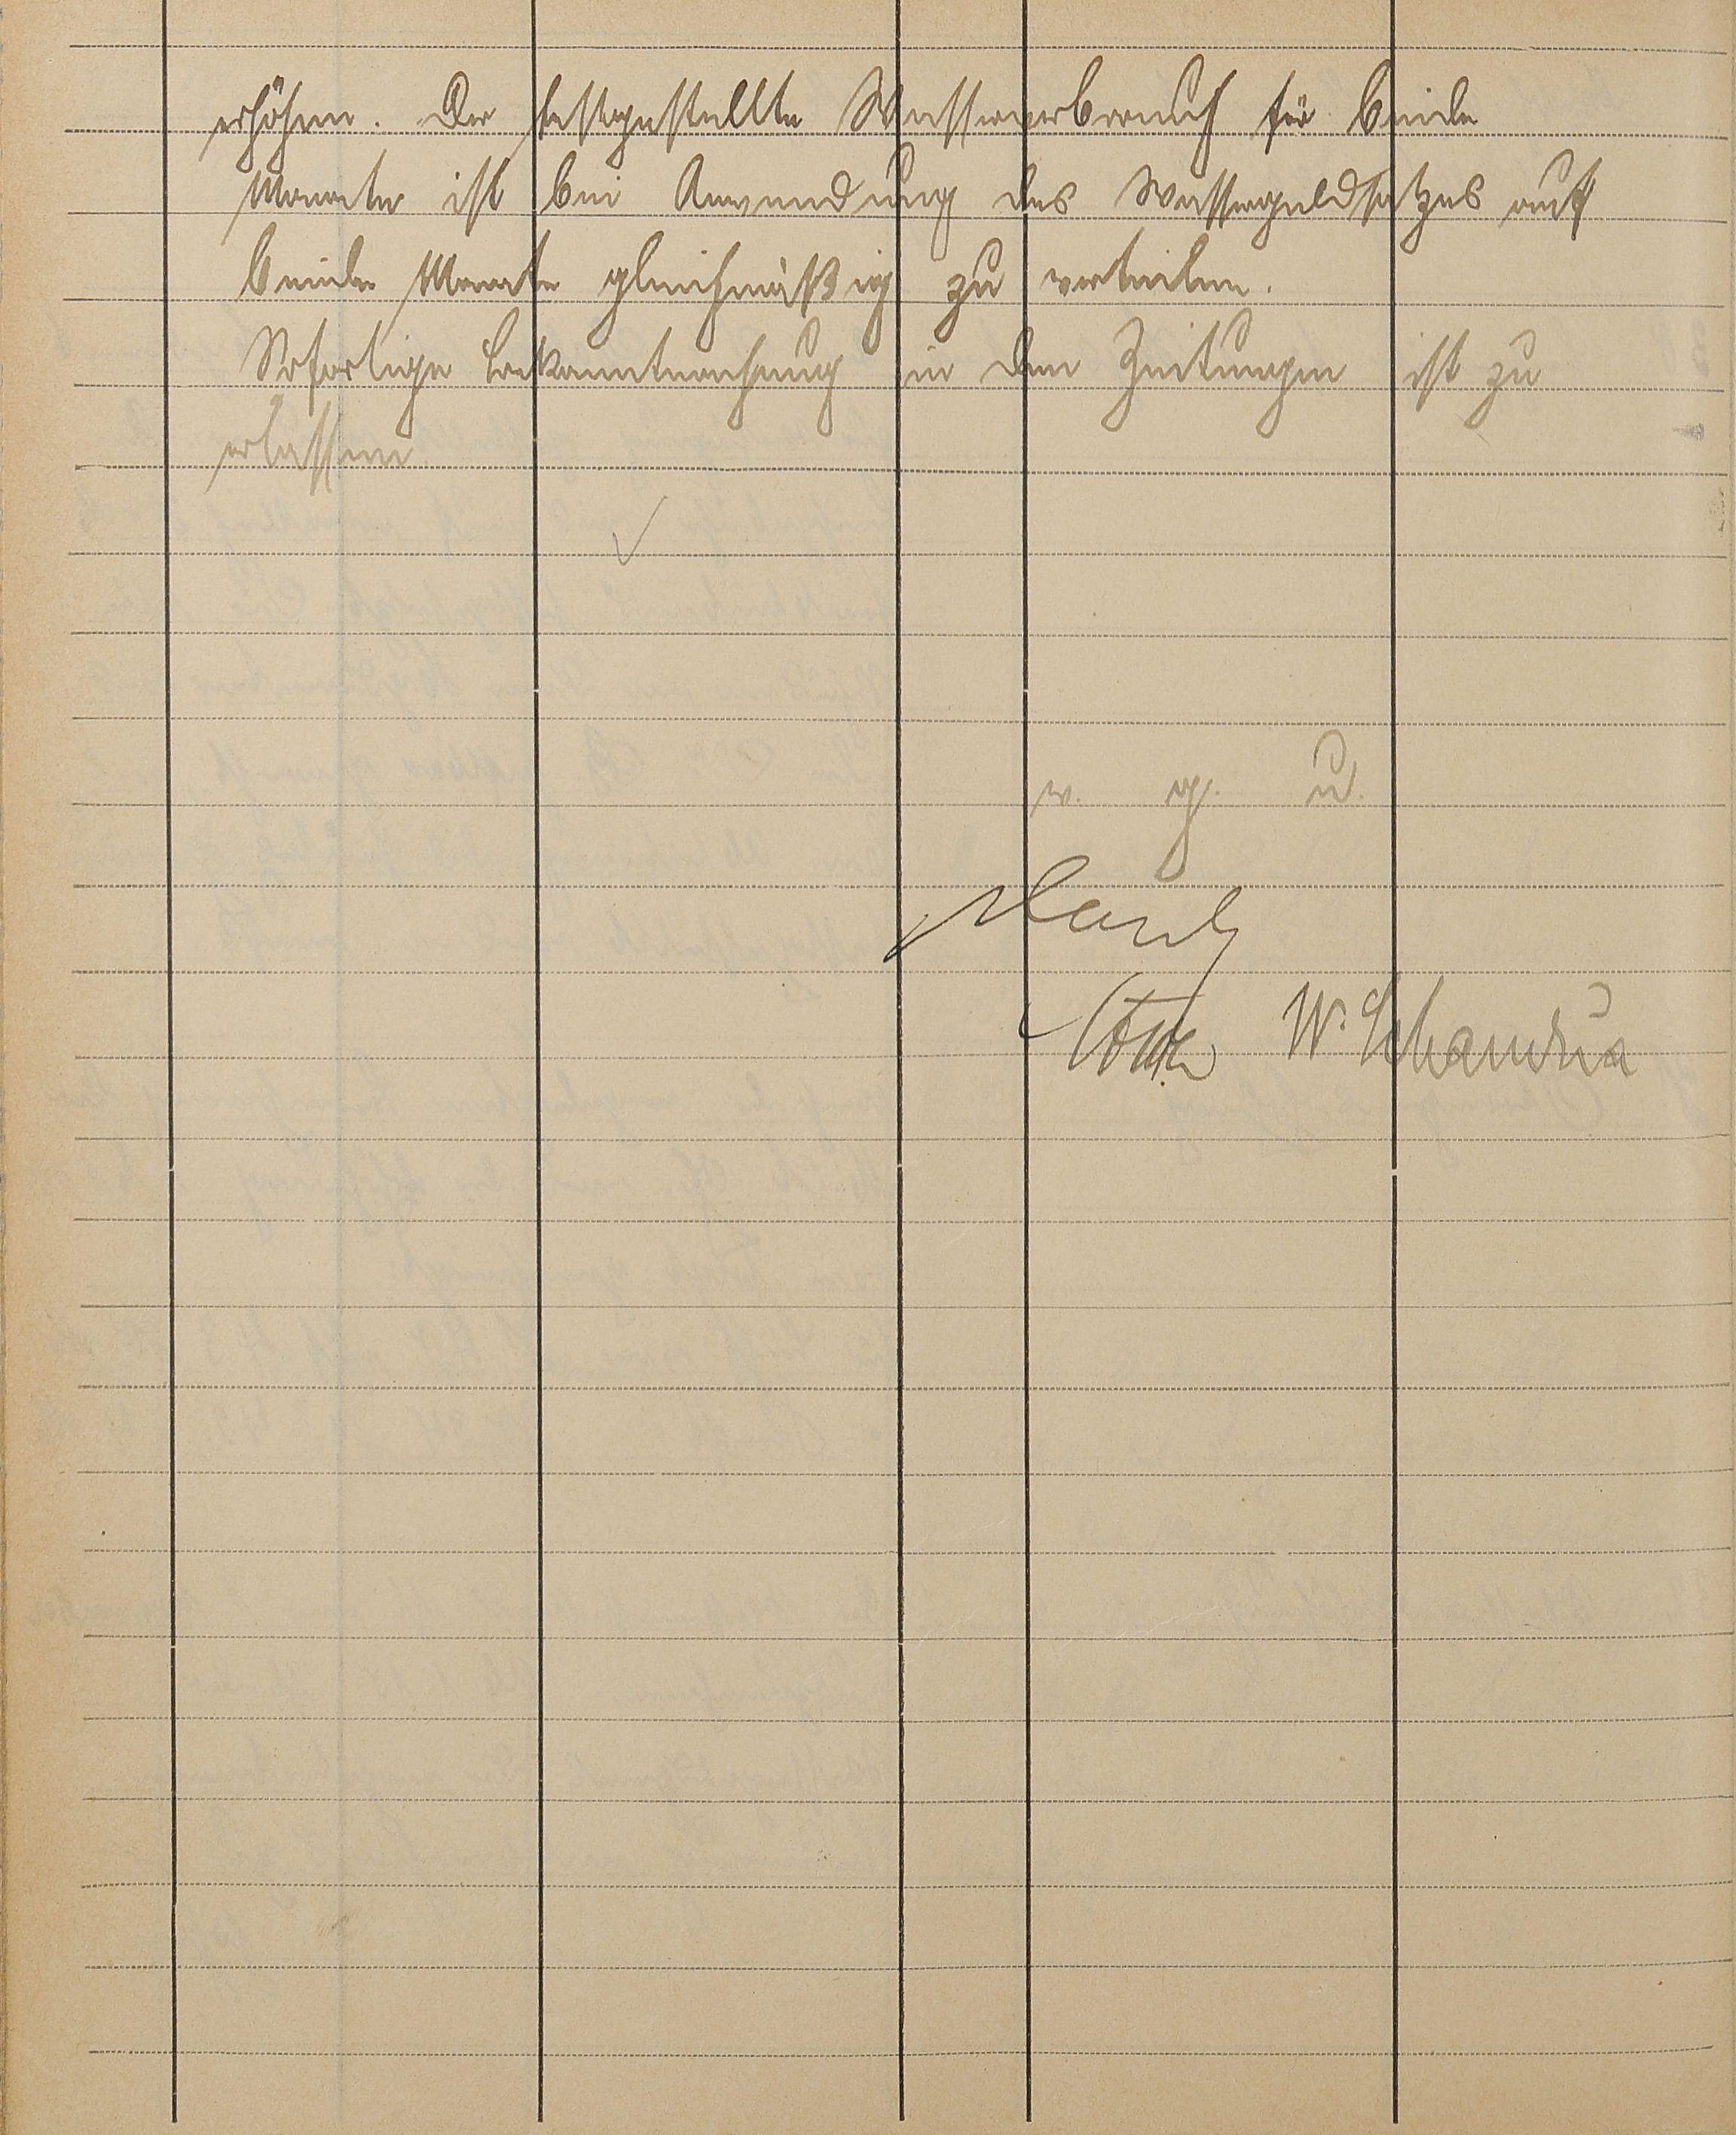 erhöhen. Der festgestellte Wasserverbrauch für beide
Monate ist bei Anwendung des Wassergeldsatzes auf
beide Monate gleichmäßig zu verteilen.
Sofortige Bekanntmachung in den Zeitungen ist zu
erlassen.
v. g. u.
W.